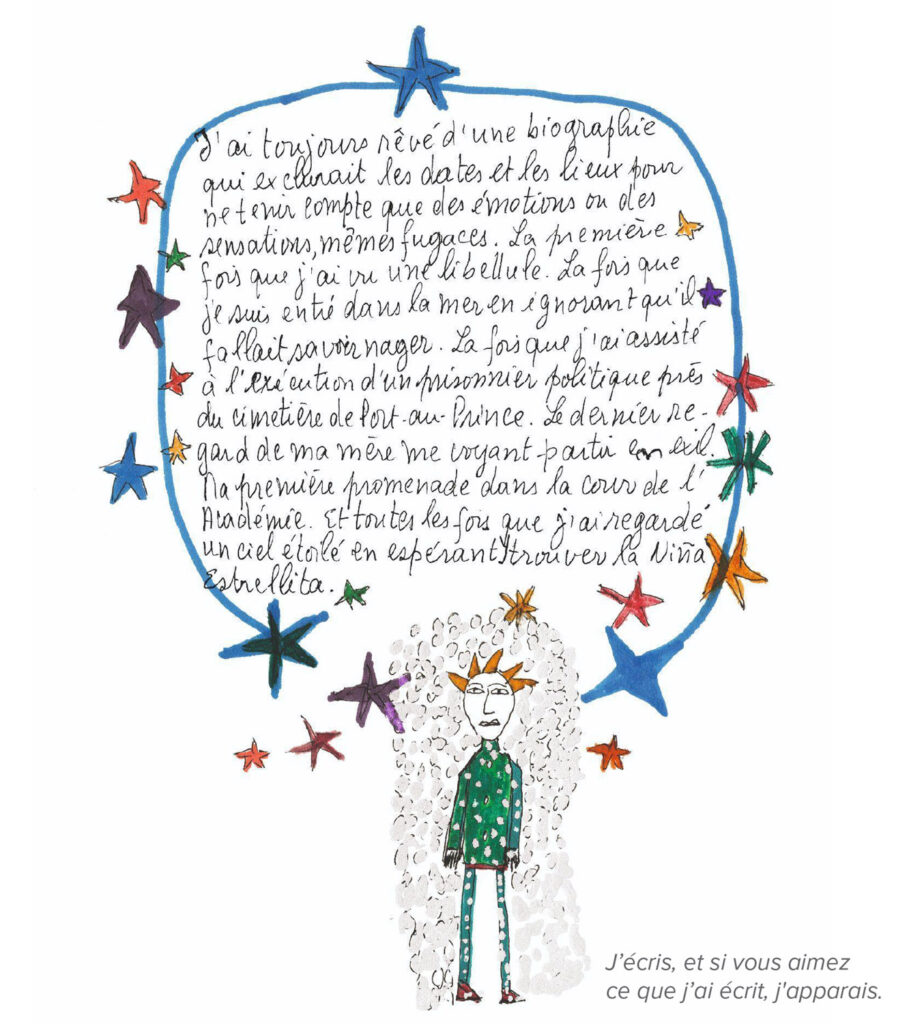 J'ai toujours rêvé d'une biographie
qui exclurait les dates et les lieux pour
ne tenir compte que des émotions ou des
sensations, mêmes fugaces. La première
fois que j'ai vu une libellule. La fois que
je suis entré dans la mer en ignorant qu'il
fallait savoir nager. La fois que j'ai assisté
à l'exécution d'un prisonnier politique près
du cimetière de Port-au-Prince. Le dernier re-
gard de ma mère me voyant partir en exil.
Ma première promenade dans la cour de l'
Académie. Et toutes les fois que j'ai regardé
un ciel étoilé en espérant trouver la Niña
Estrellita.
J'écris, et si vous aimez
ce que j'ai écrit, j'apparais.